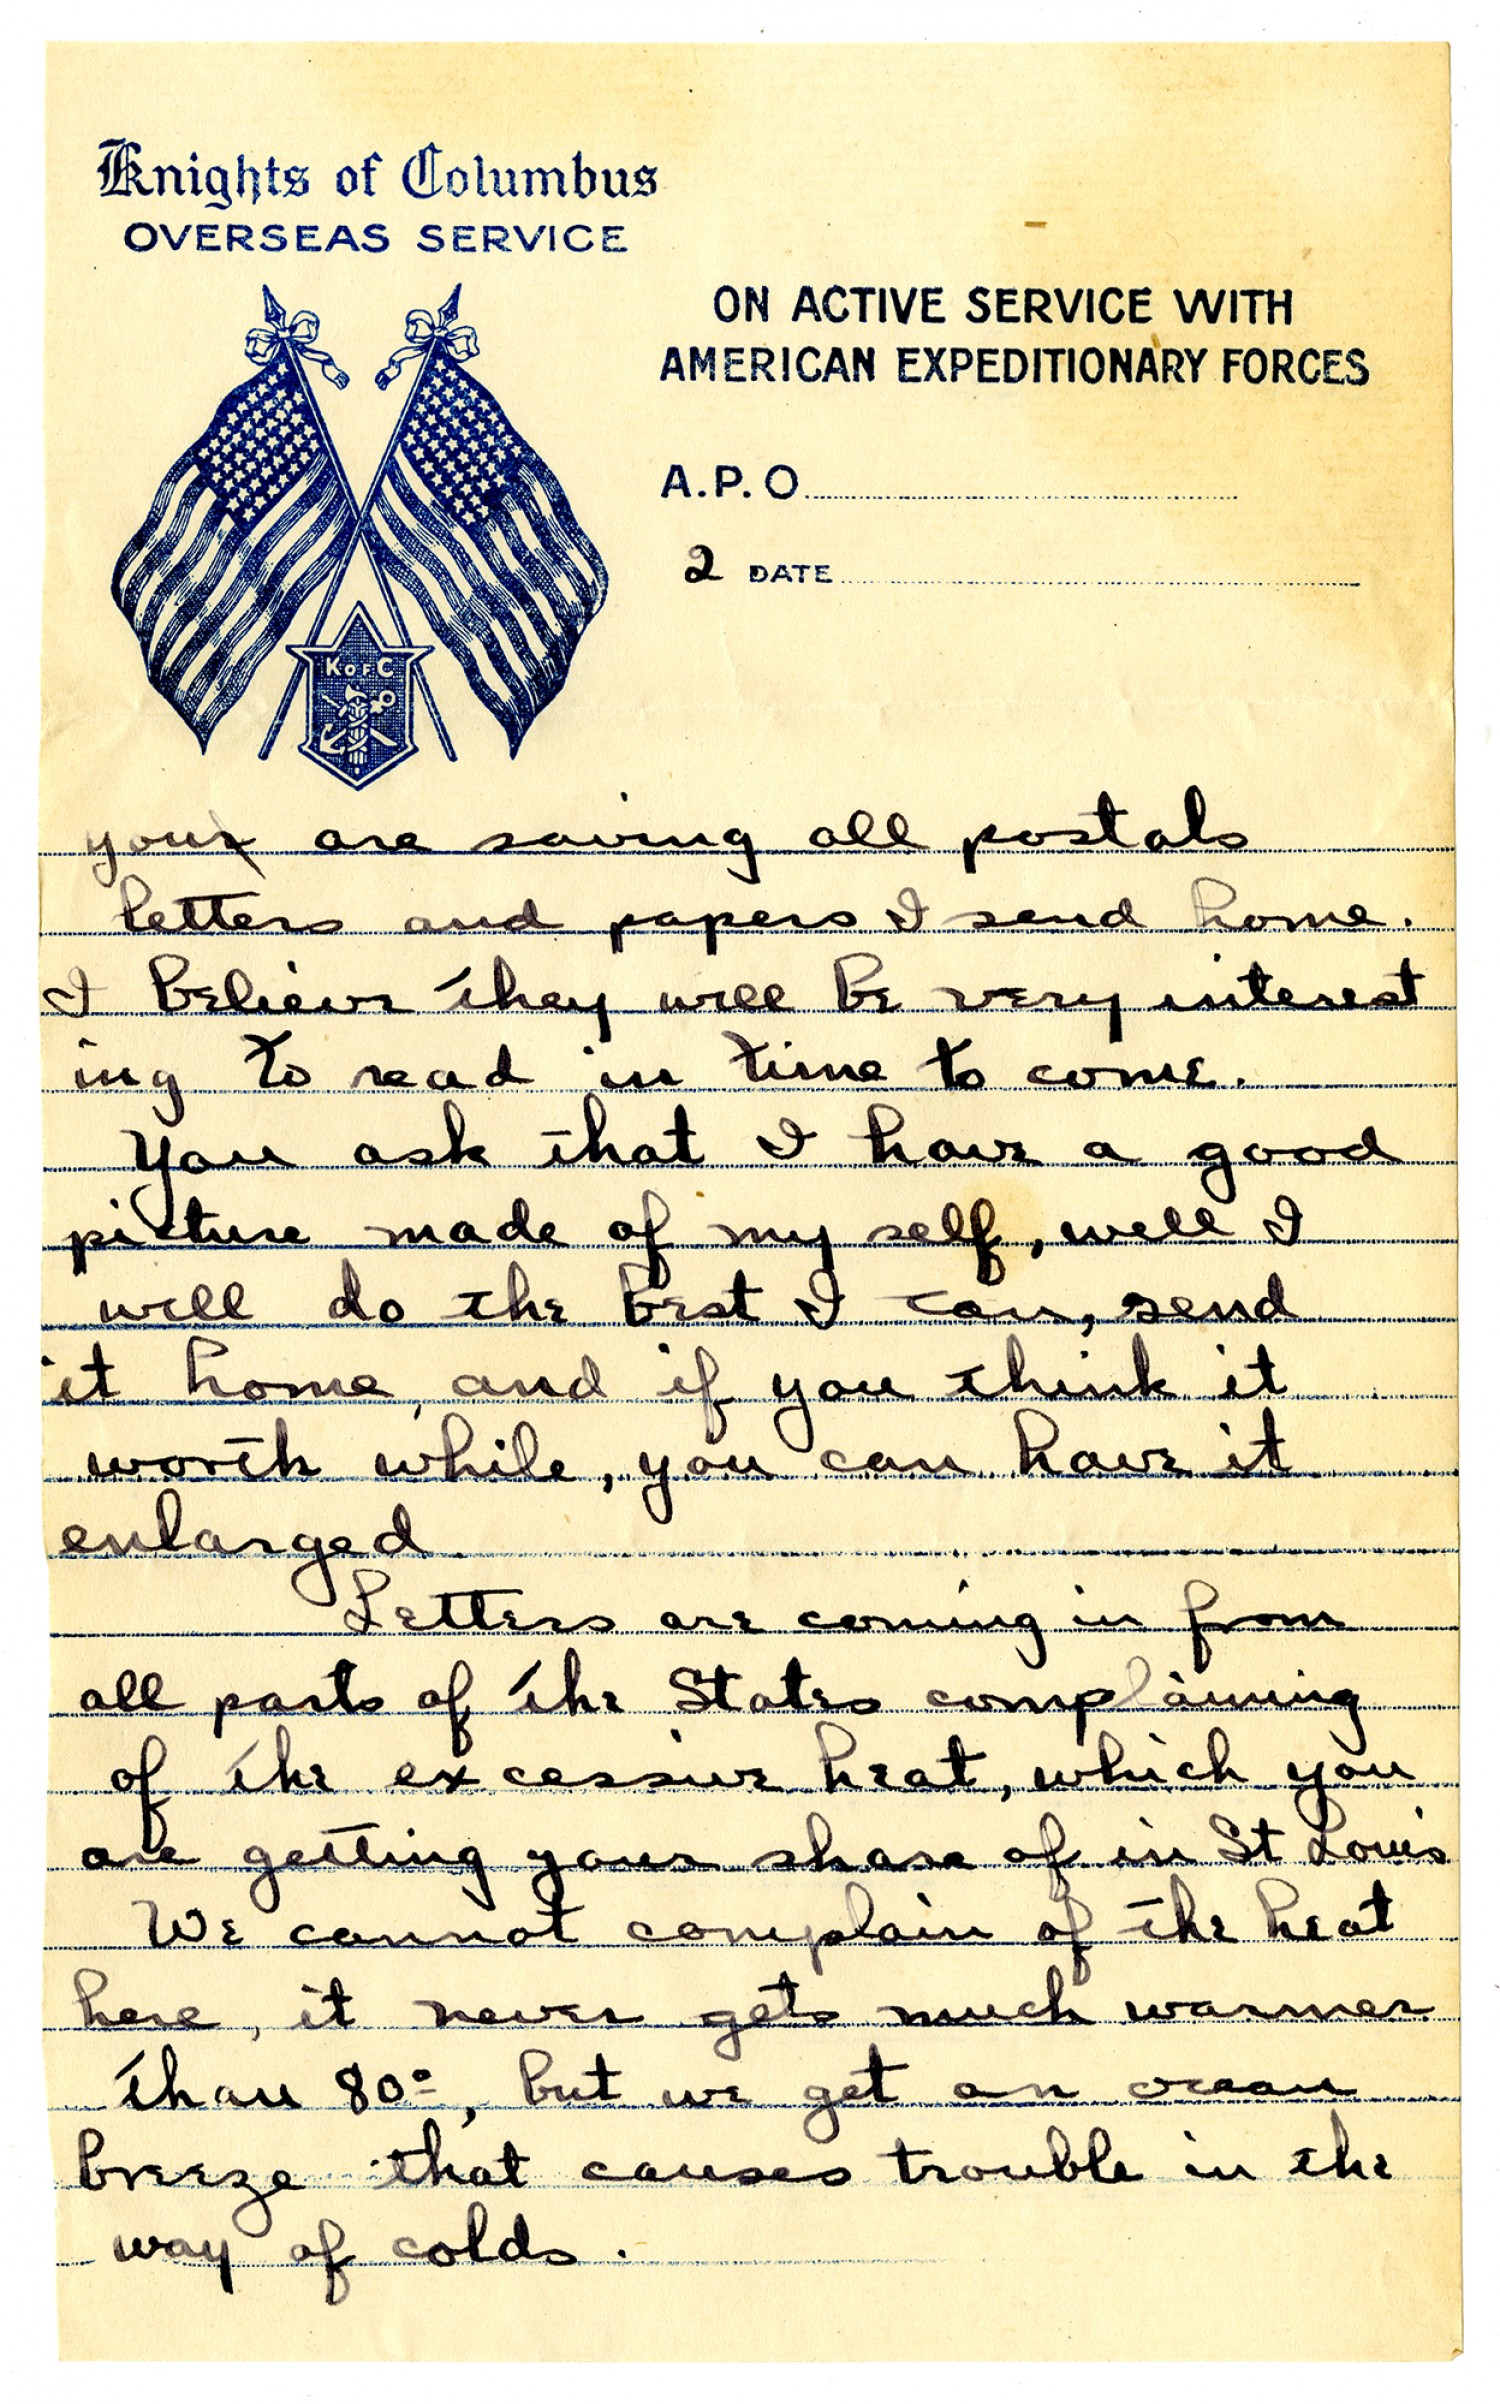 Knights of Columbus
OVERSEAS SERVICE
ON ACTIVE SERVICE WITH
AMERICAN EXPEDITIONARY FORCES
A.P.O
2 DATE
K OF C
your are saving all postals
letters and papers I send home.
I believe they will be very interest
ing to read in time to come.
You ask that I have a good
picture made of my self, well I
will do the best I can, send
it home, and if you think it
worth while, you can have it
enlarged
Letters are coming in from
all parts of the States complaining
of the excessive heat, which you
are getting your share of in St Louis
We cannot complain of the heat
here, it never gets much warmer
than 80°, but we get an ocean
breeze that causes trouble in the
way of colds.